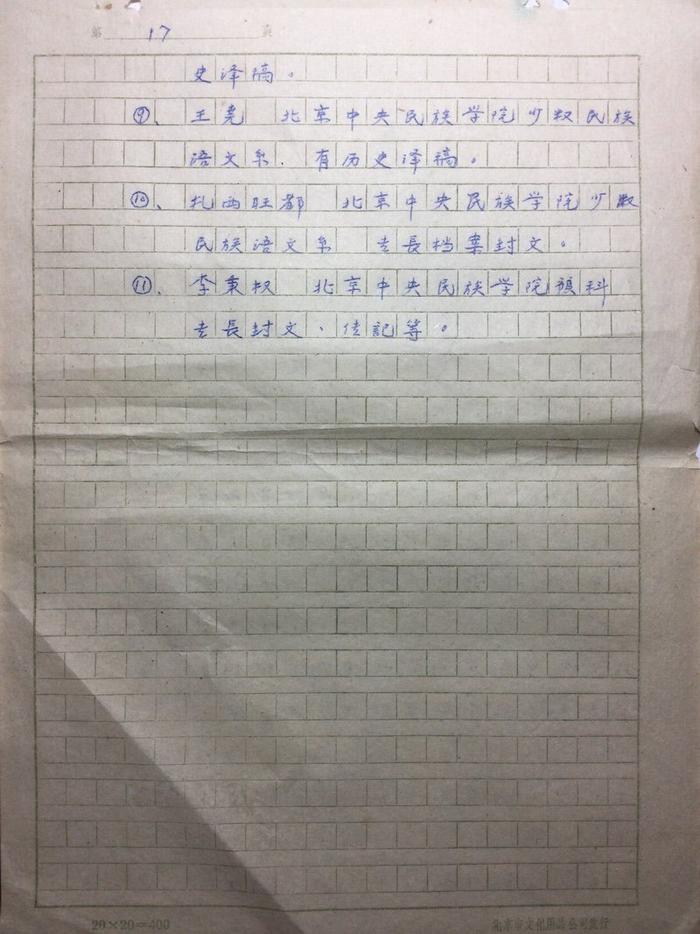 第 17 页
史译稿。
⑨、王尧 北京中央民族学院少数民族
语文系. 有历史译稿。
⑩、扎西旺都 北京中央民族学院少数
民族语文系 去長档案封文。
⑪、李秉权 北京中央民族学院预科
去長封文、传記等。
20×20=400
北京市文化用品公司发行